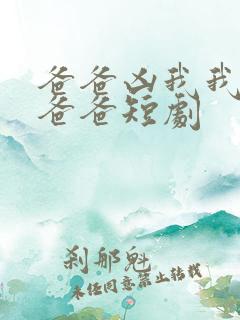 爸爸凶我我
爸爸短劇
刹那魁
未经同意禁止转载